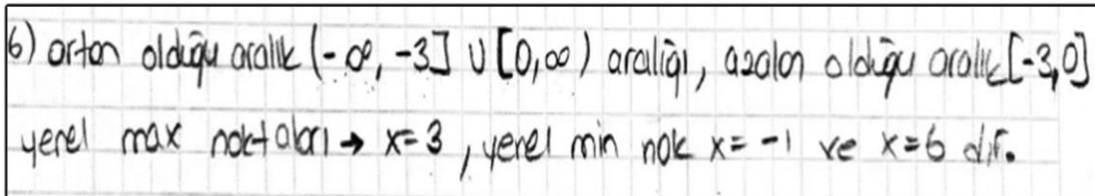 6) artan olduğu aralık (-∞, -3] ∪ [0,∞) aralığı, azalan olduğu aralık [-3,0]
yerel max noktaları → x=3, yerel min nok x= -1 ve x=6 dır.